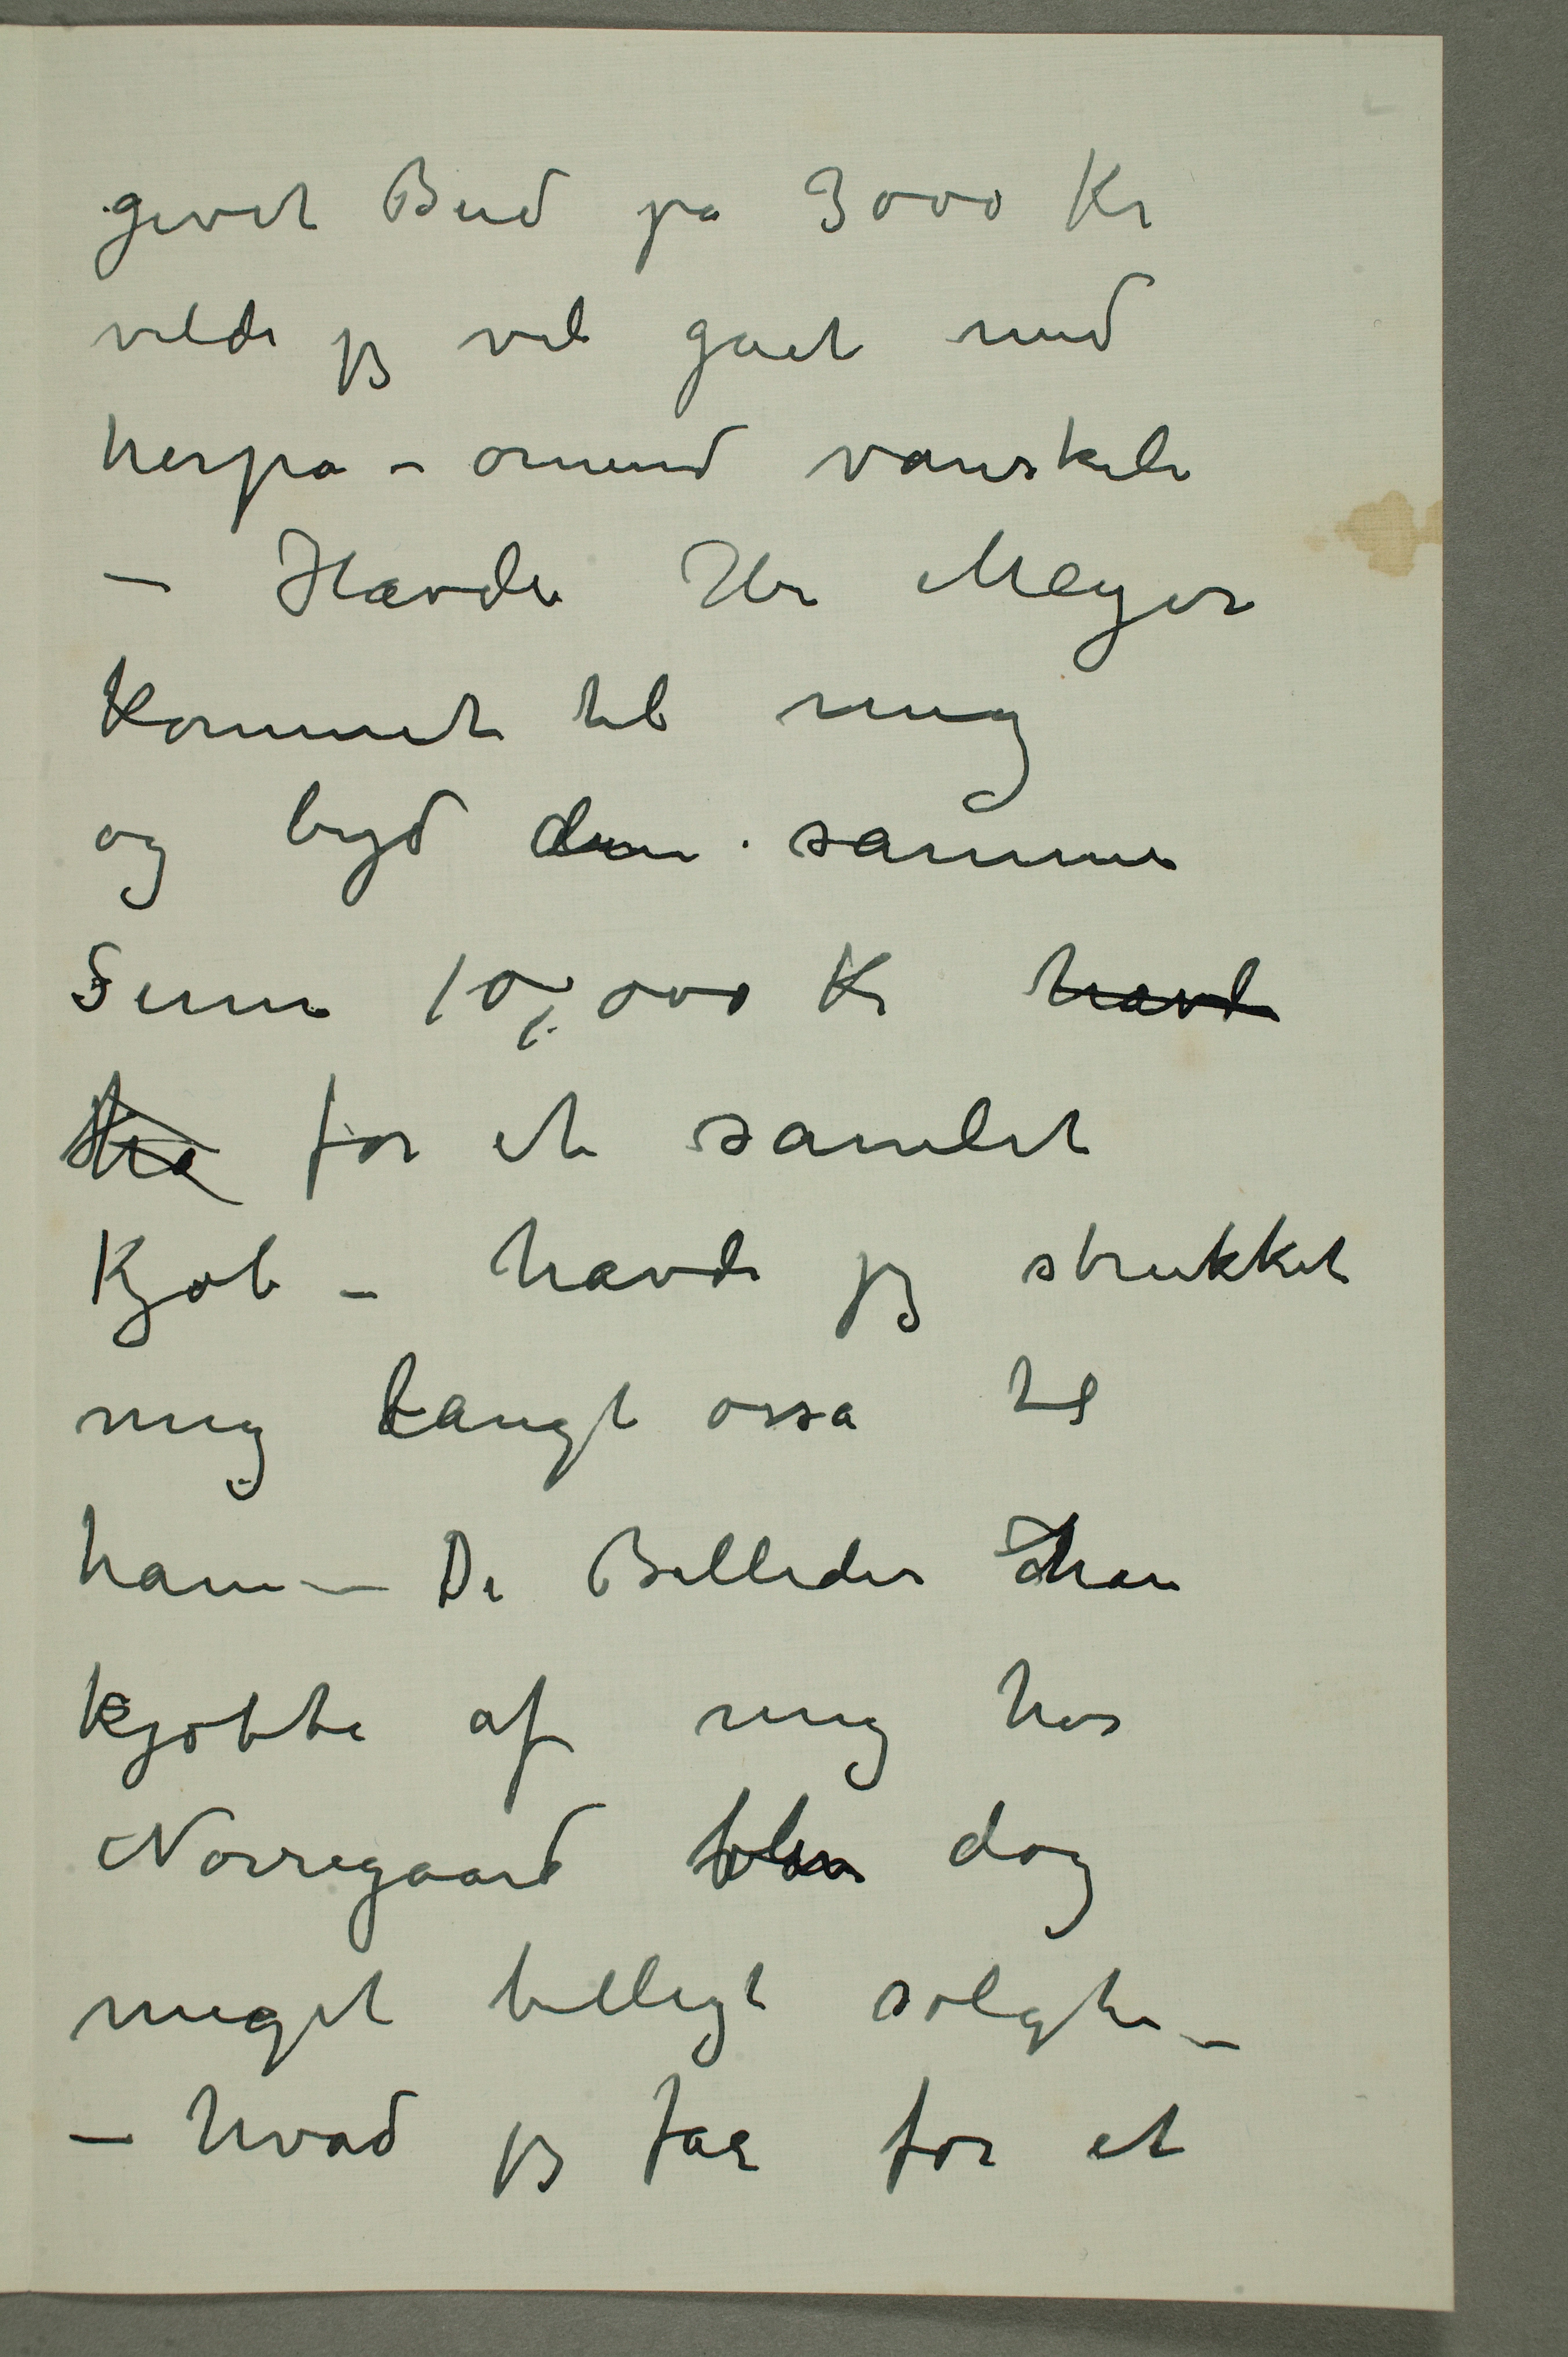 givet Bud pa 3000 Kr
vilde jeg vel gaet med
herpa – omend vanskeli
– Havde Hr Meyer
kommet til mig
og byd den samme
Sum 10,000 Kr havde
ha for et samlet
Kjøb – havde jeg strukket
mig langt ossa til
ham – De Billeder han
kjøbte af mig hos
Nørregaard blev dog
meget billigt solgte –
– hvad jeg faar for et